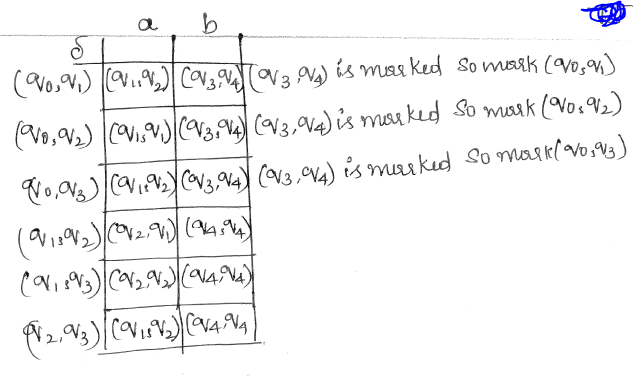 a b
δ
(q0,q1) (q1,q2) (q3,q4) (q3,q4) is marked so mark (q0,q1)
(q0,q2) (q1,q1) (q3,q4) (q3,q4) is marked so mark (q0,q2)
q0,q3) (q1,q2) (q3,q4) (q3,q4) is marked so mark (q0,q3)
(q1,q2) (q2,q1) (q4,q4)
(q1,q3) (q2,q2) (q4,q4)
(q2,q3) (q1,q2) (q4,q4